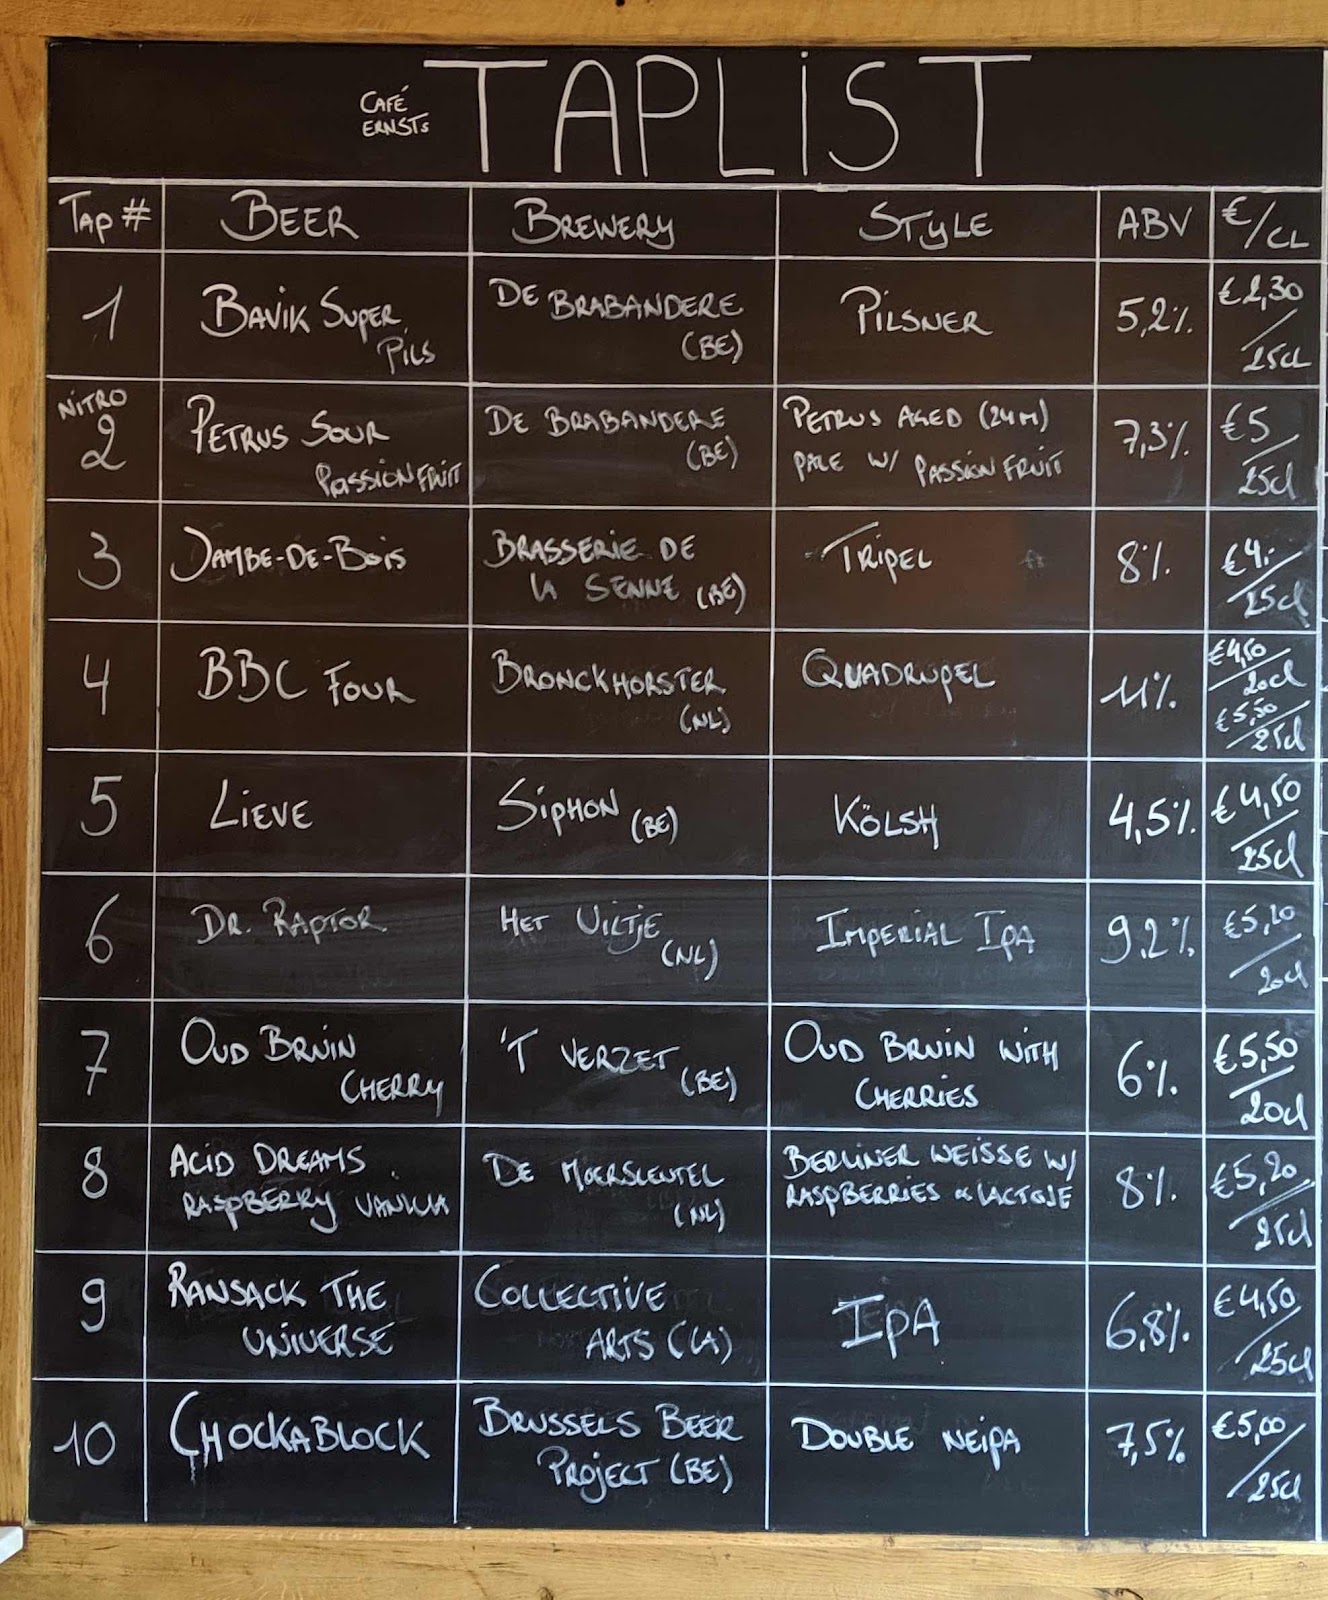 CAFÉ
ERNSTs
TAPLIST
TAP # BEER BREWERY STYLE ABV €/CL
1 BAVIK SUPER PILS DE BRABANDERE (BE) PILSNER 5,2% €2,30/25CL
NITRO
2 PETRUS SOUR PASSIONFRUIT DE BRABANDERE (BE) PETRUS AGED (24M) PALE W/ PASSIONFRUIT 7,3% €5/25cl
3 JAMBE-DE-BOIS BRASSERIE DE LA SENNE (BE) TRIPEL 8% €4,-/25cl
4 BBC FOUR BRONCKHORSTER (NL) QUADRUPEL 11% €4,50/20cl €5,50/25cl
5 LIEVE SIPHON (BE) KÖLSH 4,5% €4,50/25cl
6 DR. RAPTOR HET UILTJE (NL) IMPERIAL IPA 9,2% €5,20/20cl
7 OUD BRUIN CHERRY 'T VERZET (BE) OUD BRUIN WITH CHERRIES 6% €5,50/20cl
8 ACID DREAMS RASPBERRY VANILLA DE MOERSLEUTEL (NL) BERLINER WEISSE W/ RASPBERRIES & LACTOSE 8% €5,20/25cl
9 RANSACK THE UNIVERSE COLLECTIVE ARTS (CA) IPA 6,8% €4,50/25cl
10 CHOCKABLOCK BRUSSELS BEER PROJECT (BE) DOUBLE NEIPA 7,5% €5,00/25cl